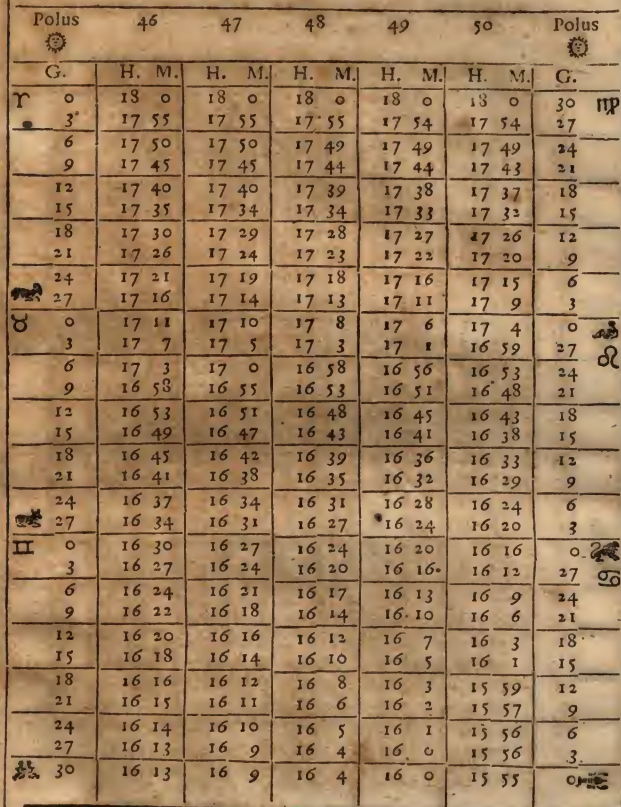 Polus ☼ 46 47 48 49 50 Polus ☼
G. H. M. H. M. H. M. H. M. H. M. G.
♈ 0 18 0 18 0 18 0 18 0 18 0 30 ♍
3 17 55 17 55 17 55 17 54 17 54 27
6 17 50 17 50 17 49 17 49 17 49 24
9 17 45 17 45 17 44 17 44 17 43 21
12 17 40 17 40 17 39 17 38 17 37 18
15 17 35 17 34 17 34 17 33 17 32 15
18 17 30 17 29 17 28 17 27 17 26 12
21 17 26 17 24 17 23 17 22 17 20 9
24 17 21 17 19 17 18 17 16 17 15 6
27 17 16 17 14 17 13 17 11 17 9 3
♉ 0 17 11 17 10 17 8 17 6 17 4 0
3 17 7 17 5 17 3 17 1 16 59 27 ♌
6 17 3 17 0 16 58 16 56 16 53 24
9 16 58 16 55 16 53 16 51 16 48 21
12 16 53 16 51 16 48 16 45 16 43 18
15 16 49 16 47 16 43 16 41 16 38 15
18 16 45 16 42 16 39 16 36 16 33 12
21 16 41 16 38 16 35 16 32 16 29 9
24 16 37 16 34 16 31 16 28 16 24 6
27 16 34 16 31 16 27 16 24 16 20 3
♊ 0 16 30 16 27 16 24 16 20 16 16 0
3 16 27 16 24 16 20 16 16 16 12 27 ♋
6 16 24 16 21 16 17 16 13 16 9 24
9 16 22 16 18 16 14 16 10 16 6 21
12 16 20 16 16 16 12 16 7 16 3 18
15 16 18 16 14 16 10 16 5 16 1 15
18 16 16 16 12 16 8 16 3 15 59 12
21 16 15 16 11 16 6 16 2 15 57 9
24 16 14 16 10 16 5 16 1 15 56 6
27 16 13 16 9 16 4 16 0 15 56 3
30 16 13 16 9 16 4 16 0 15 55 0